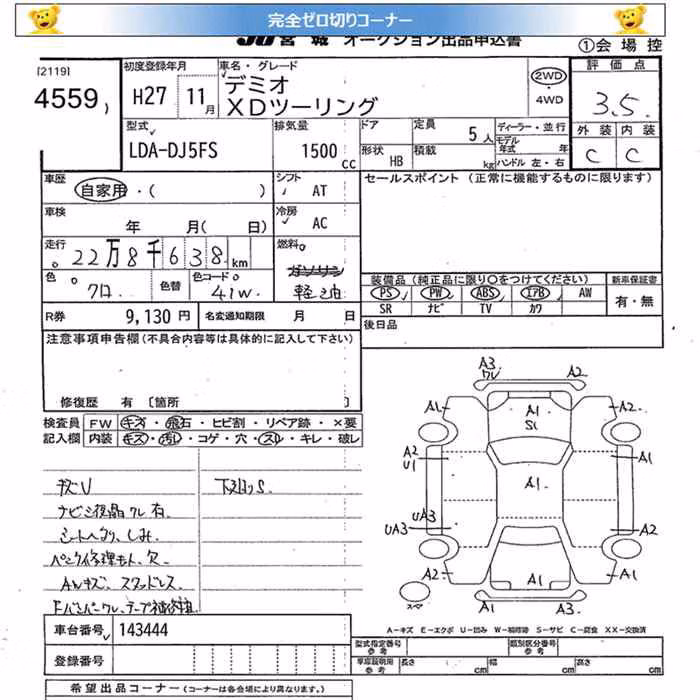 完全ゼロ切りコーナー
JU 宮城 オークション出品申込書
①会場控
[2119]
4559
初度登録年月
H27 11月
車名・グレード
デミオ
XDツーリング
2WD
・4WD
評価点
3.5
外装 内装
C C
型式
LDA-DJ5FS
排気量
1500cc
ドア
定員
5人
形状 HB
積載 kg
ディーラー・並行
モデル年式 年
ハンドル 左・右
車歴
自家用・( )
シフト AT
セールスポイント (正常に機能するものに限ります)
車検
年 月( 日)
冷房 AC
走行
22万8千638km
燃料
ガソリン
軽油
色 クロ
色替
色コード 41W
装備品 (純正品に限り○をつけてください)
新車保証書
PS PW ABS エアB AW
有・無
SR ナビ TV カワ
R券 9,130円
名変通知期限 月 日
後日品
注意事項申告欄(不具合内容等は具体的に記入して下さい)
修復歴 有 〔箇所 〕
検査員 FW キズ・飛石・ヒビ割・リペア跡・×要
記入欄 内装 キズ・汚れ・コゲ・穴・スレ・キレ・破レ
下廻りS.
ナビ液晶ワレ有.
シートヘタリ、しみ.
パンク修理キット欠
AWキズ、スタッドレス
A3
ワレ
A2
A1
A1
S1
A2
A2
U1
A1
A1
UA3
UA3
A2
A2
A1
A1
スペア
A1
A3
A-キズ E-エクボ U-凹み W-補修跡 S-サビ C-腐食 XX-交換済
車台番号 143444
型式指定番号
参考
類別区分番号
参考
登録番号
車庫証明用
参考
長さ cm 幅 cm 高さ cm
希望出品コーナー (コーナーは各会場により異なります。)